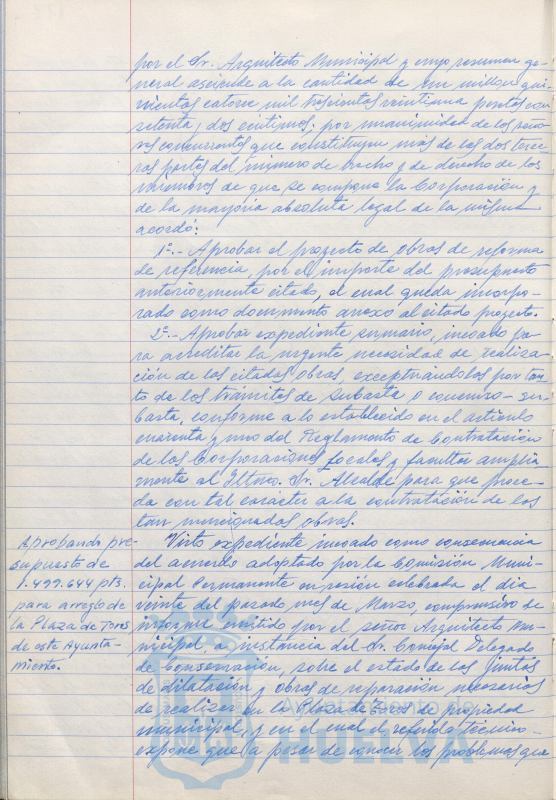 por el Sr. Arquitecto Municipal y cuyo resumen ge-
neral asciende a la cantidad de un millon qui-
nientas catorce mil trescientas veintiuna pesetas con
setenta y dos centimos; por unanimidad de los seño-
res concurrentes que constituyen más de las dos terce-
ras partes del número de hecho y de derecho de los
miembros de que se compone la Corporación y
de la mayoria absoluta legal de la misma
acordó:
1º.- Aprobar el proyecto de obras de reforma
de referencia, por el importe del presupuesto
anteriormente citado, el cual queda incorpo-
rado como documento anexo al citado proyecto.
2º.- Aprobar expediente sumario, incoado pa-
ra acreditar la urgente necesidad de realiza-
ción de las citadas obras, exceptuándolas por tan-
to de los trámites de subasta o concurso-su-
basta, conforme a lo establecido en el artículo
cuarenta y uno del Reglamento de Contratación
de las Corporaciones Locales y facultar amplia-
mente al Iltmo. Sr. Alcalde para que proce-
da con tal carácter a la contratación de las
tan mencionadas obras.
Aprobando pre-
supuesto de
1.499.644 pts.
para arreglo de
la Plaza de Toros
de este Ayunta-
miento.
Visto expediente incoado como consecuencia
del acuerdo adoptado por la Comisión Muni-
cipal Permanente en sesión celebrada el dia
veinte del pasado mes de Marzo, comprensivo de
informe emitido por el señor Arquitecto mu-
nicipal, a instancia del Sr. Concejal Delegado
de Conservación, sobre el estado de las juntas
de dilatación y obras de reparación necesarias
de realizar en la Plaza de Toros de propiedad
municipal, y en el cual el referido técnico
expone que a pesar de conocer los problemas que
HUELVA